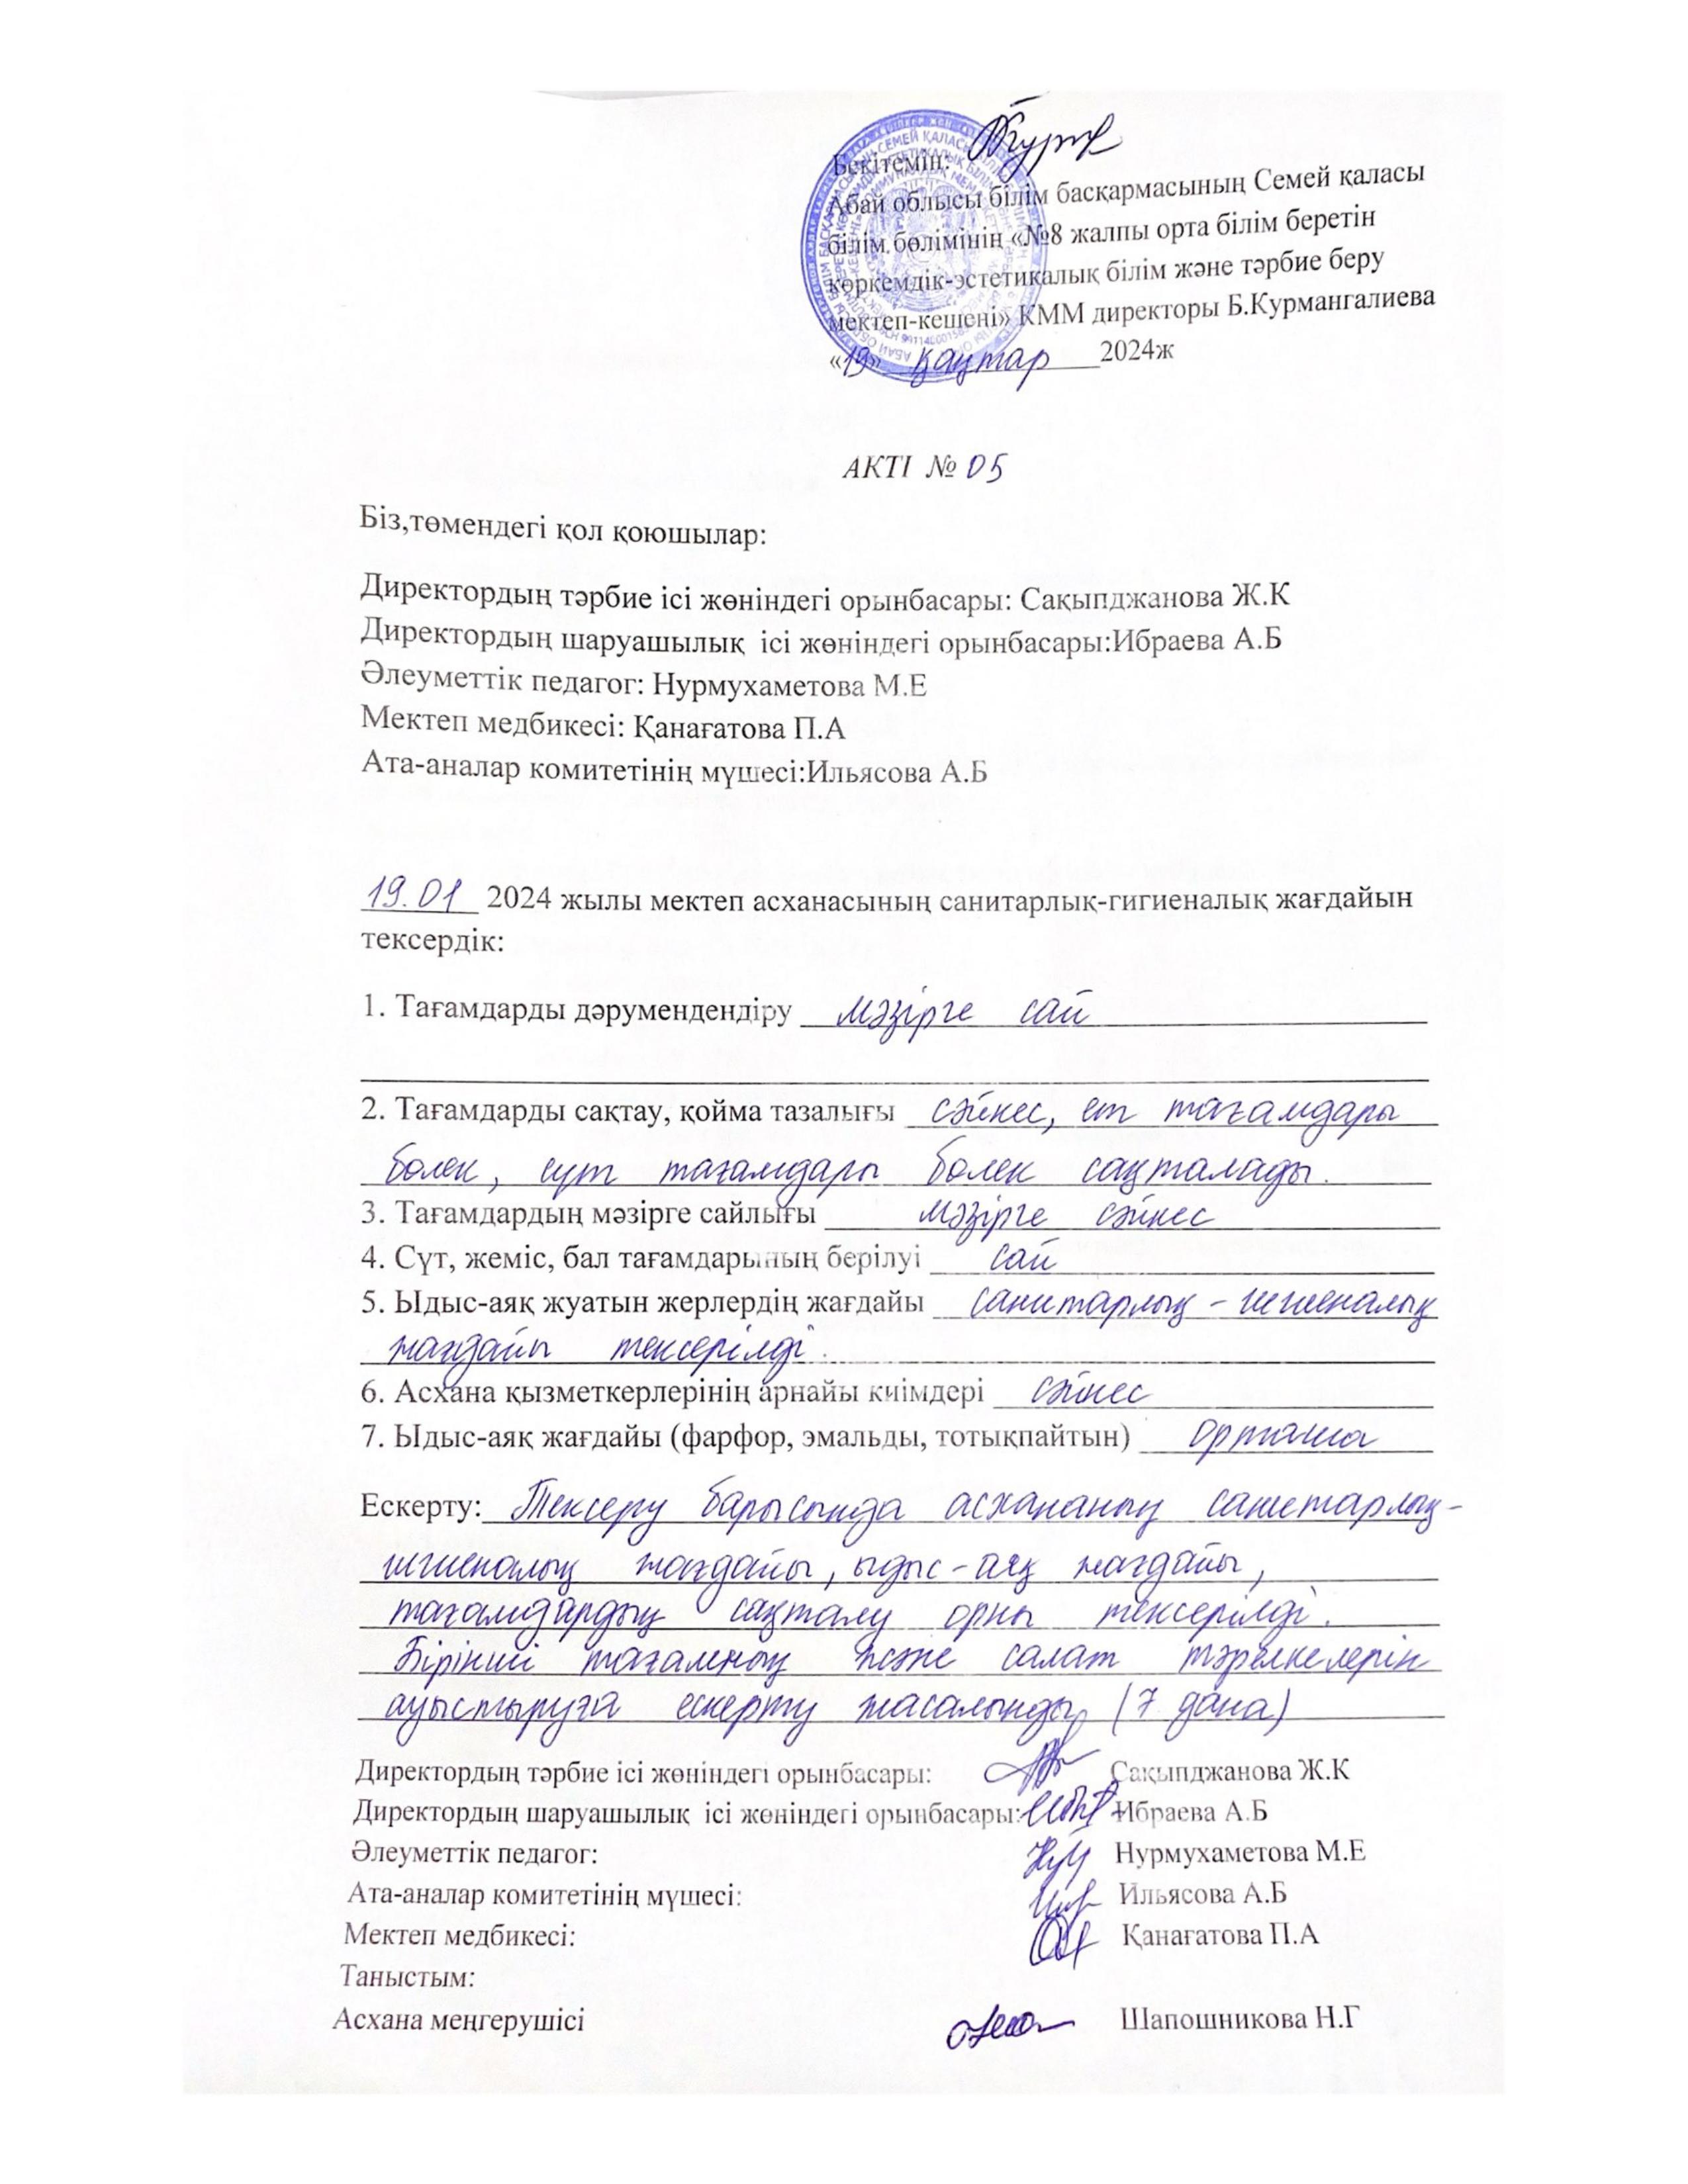 Бекітемін:
Абай облысы білім басқармасының Семей қаласы
білім бөлімінің «№8 жалпы орта білім беретін
көркемдік-эстетикалық білім және тәрбие беру
мектеп-кешені» КММ директоры Б.Курмангалиева
«19» қаңтар 2024ж
АКТІ № 05
Біз,төмендегі қол қоюшылар:
Директордың тәрбие ісі жөніндегі орынбасары: Сақыпджанова Ж.К
Директордың шаруашылық ісі жөніндегі орынбасары:Ибраева А.Б
Әлеуметтік педагог: Нурмухаметова М.Е
Мектеп медбикесі: Қанағатова П.А
Ата-аналар комитетінің мүшесі:Ильясова А.Б
19.01 2024 жылы мектеп асханасының санитарлық-гигиеналық жағдайын
тексердік:
1. Тағамдарды дәрумендендіру мәзірге сай
2. Тағамдарды сақтау, қойма тазалығы сәйкес, ет тағамдары
бөлек, сүт тағамдары бөлек сақталады.
3. Тағамдардың мәзірге сайлығы мәзірге сәйкес
4. Сүт, жеміс, бал тағамдарының берілуі сай
5. Ыдыс-аяқ жуатын жерлердің жағдайы санитарлық-гигиеналық
жағдайы тексерілді.
6. Асхана қызметкерлерінің арнайы киімдері сәйкес
7. Ыдыс-аяқ жағдайы (фарфор, эмальды, тотықпайтын) орташа
Ескерту: Тексеру барысында асхананың санитарлық-
гигиеналық жағдайы, ыдыс-аяқ жағдайы,
тағамдардың сақталу орны тексерілді.
Бірінші тағамның және салат тәрелкелерін
ауыстыруға ескерту жасалынды (7 дана)
Директордың тәрбие ісі жөніндегі орынбасары: Сақыпджанова Ж.К
Директордың шаруашылық ісі жөніндегі орынбасары: Ибраева А.Б
Әлеуметтік педагог: Нурмухаметова М.Е
Ата-аналар комитетінің мүшесі: Ильясова А.Б
Мектеп медбикесі: Қанағатова П.А
Таныстым:
Асхана меңгерушісі Шапошникова Н.Г